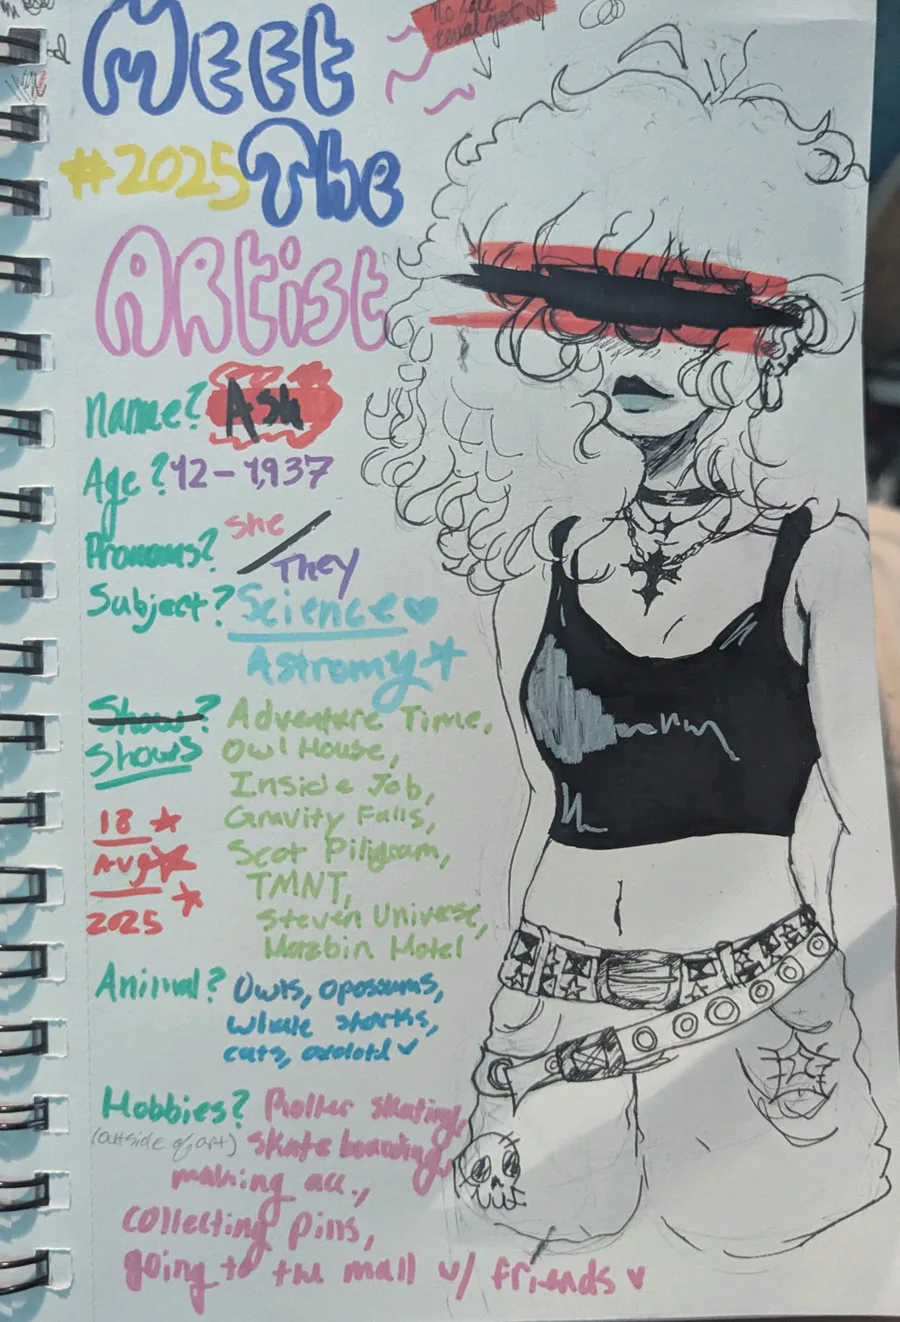 No face
reveal yet
MEEt
#2025 The
ARtist
Name? Ash
Age? 12-1,937
Pronouns? She / They
Subject? Science
Astromy
Show?
Shows
Adventure Time,
Owl House,
Inside Job,
Gravity Falls,
Scot Piligram,
TMNT,
Steven Universe,
Hazbin Hotel
18
Aug
2025
Animal? Owls, opossums,
whale sharks,
cats, axolotl
Hobbies? Roller skating,
(outside of art) skate boarding,
making acc.,
collecting pins,
going to the mall w/ friends